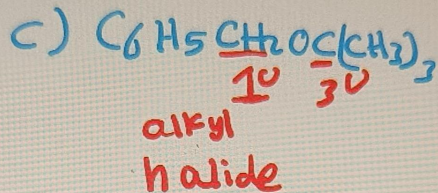 c) C6H5CH2OC(CH3)3
1° 3°
alkyl
halide